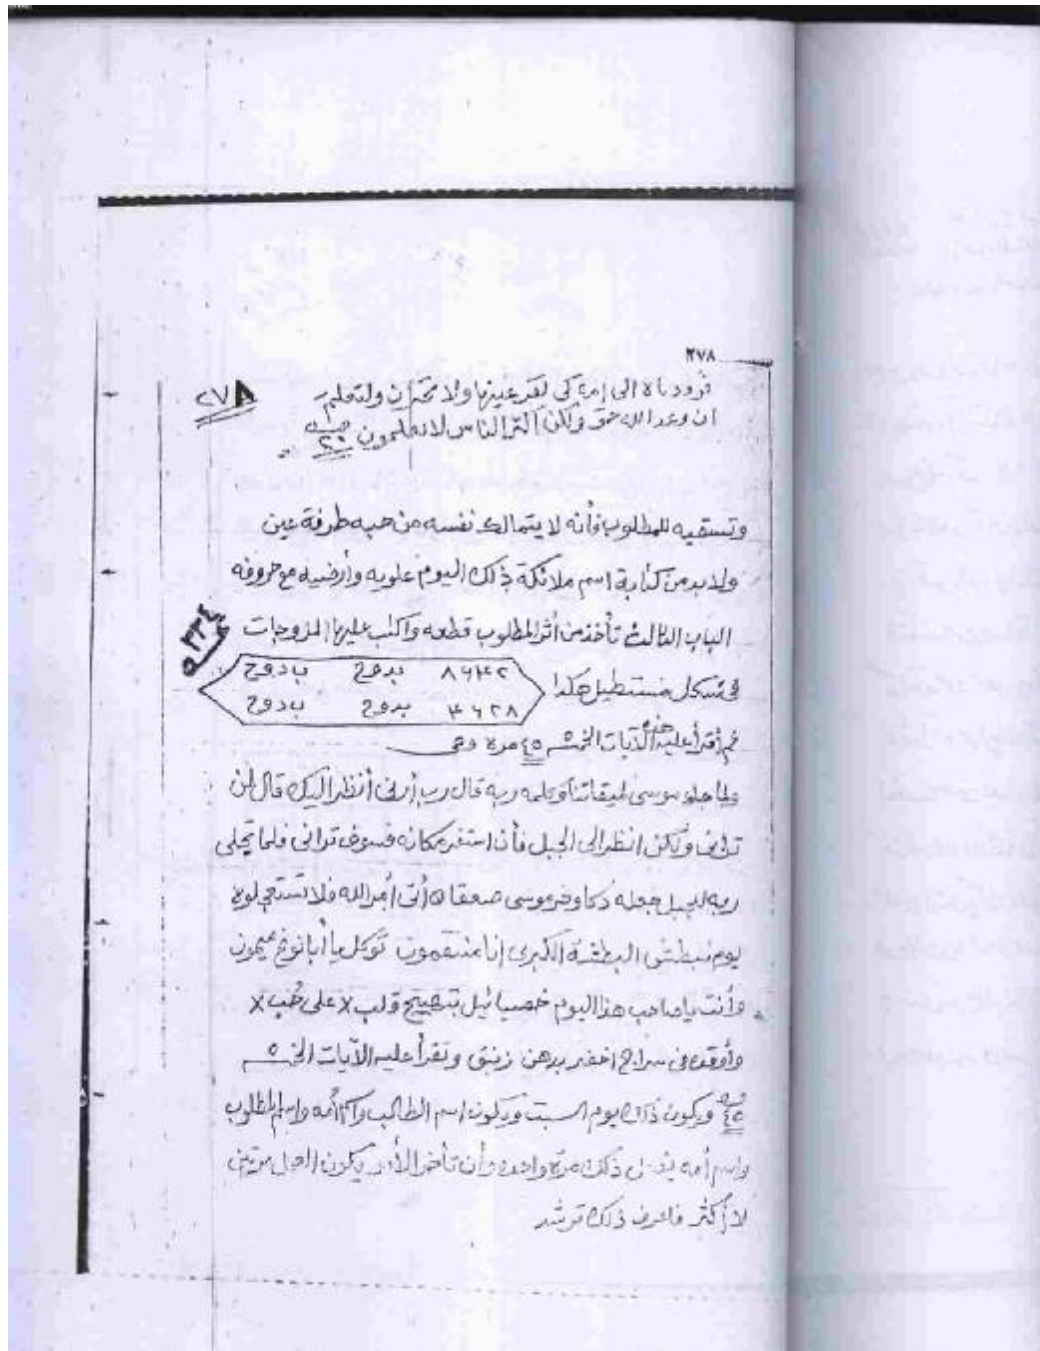 ٢٧٨
فرددناه الى امه كى تقر عينها ولا تحزن ولتعلم ٢٧٨
ان وعد الله حق ولكن اكثر الناس لا يعلمون ٢٠
وتسقيه للمطلوب فأنه لا يتمالك نفسه من حبه طرفة عين
ولا بد من كتابة اسم ملائكة ذلك اليوم علويه وأرضيه مع حروفه
الباب الثالث تأخذ من أثر المطلوب قطعه واكتب عليها المزوجات
فى شكل مستطيل هكذا
٨٦٤٢ بدوح بادوح
٤٦٢٨ بدوح بادوح
ثم أقرأ عليه هذه الآيات الخمسه ٤٥ مرة وهى
ولما جاء موسى لميقاتنا وكلمه ربه قال رب أرنى أنظر اليك قال لن
ترانى ولكن انظر الى الجبل فأن استقر مكانه فسوف ترانى فلما تجلى
ربه للجبل جعله دكا وخر موسى صعقا ه أتى أمر الله فلا تستعجلوه
يوم نبطش البطشة الكبرى إنا منتقمون توكل يا أبا نوخ ميمون
وأنت يا صاحب هذا اليوم خصيائيل بتهييج قلب x على حُب x
وأوقده فى سراج اخضر بدهن زنبق وتقرأ عليه الآيات الخمسه
٤٥ ويكون ذلك يوم السبت ويكون اسم الطالب واسم أمه واسم المطلوب
واسم أمه ذلك مرة واحده وأن تأخر الأمر يكون العمل مرتين
لا أكثر فاعرف ذلك ترشد